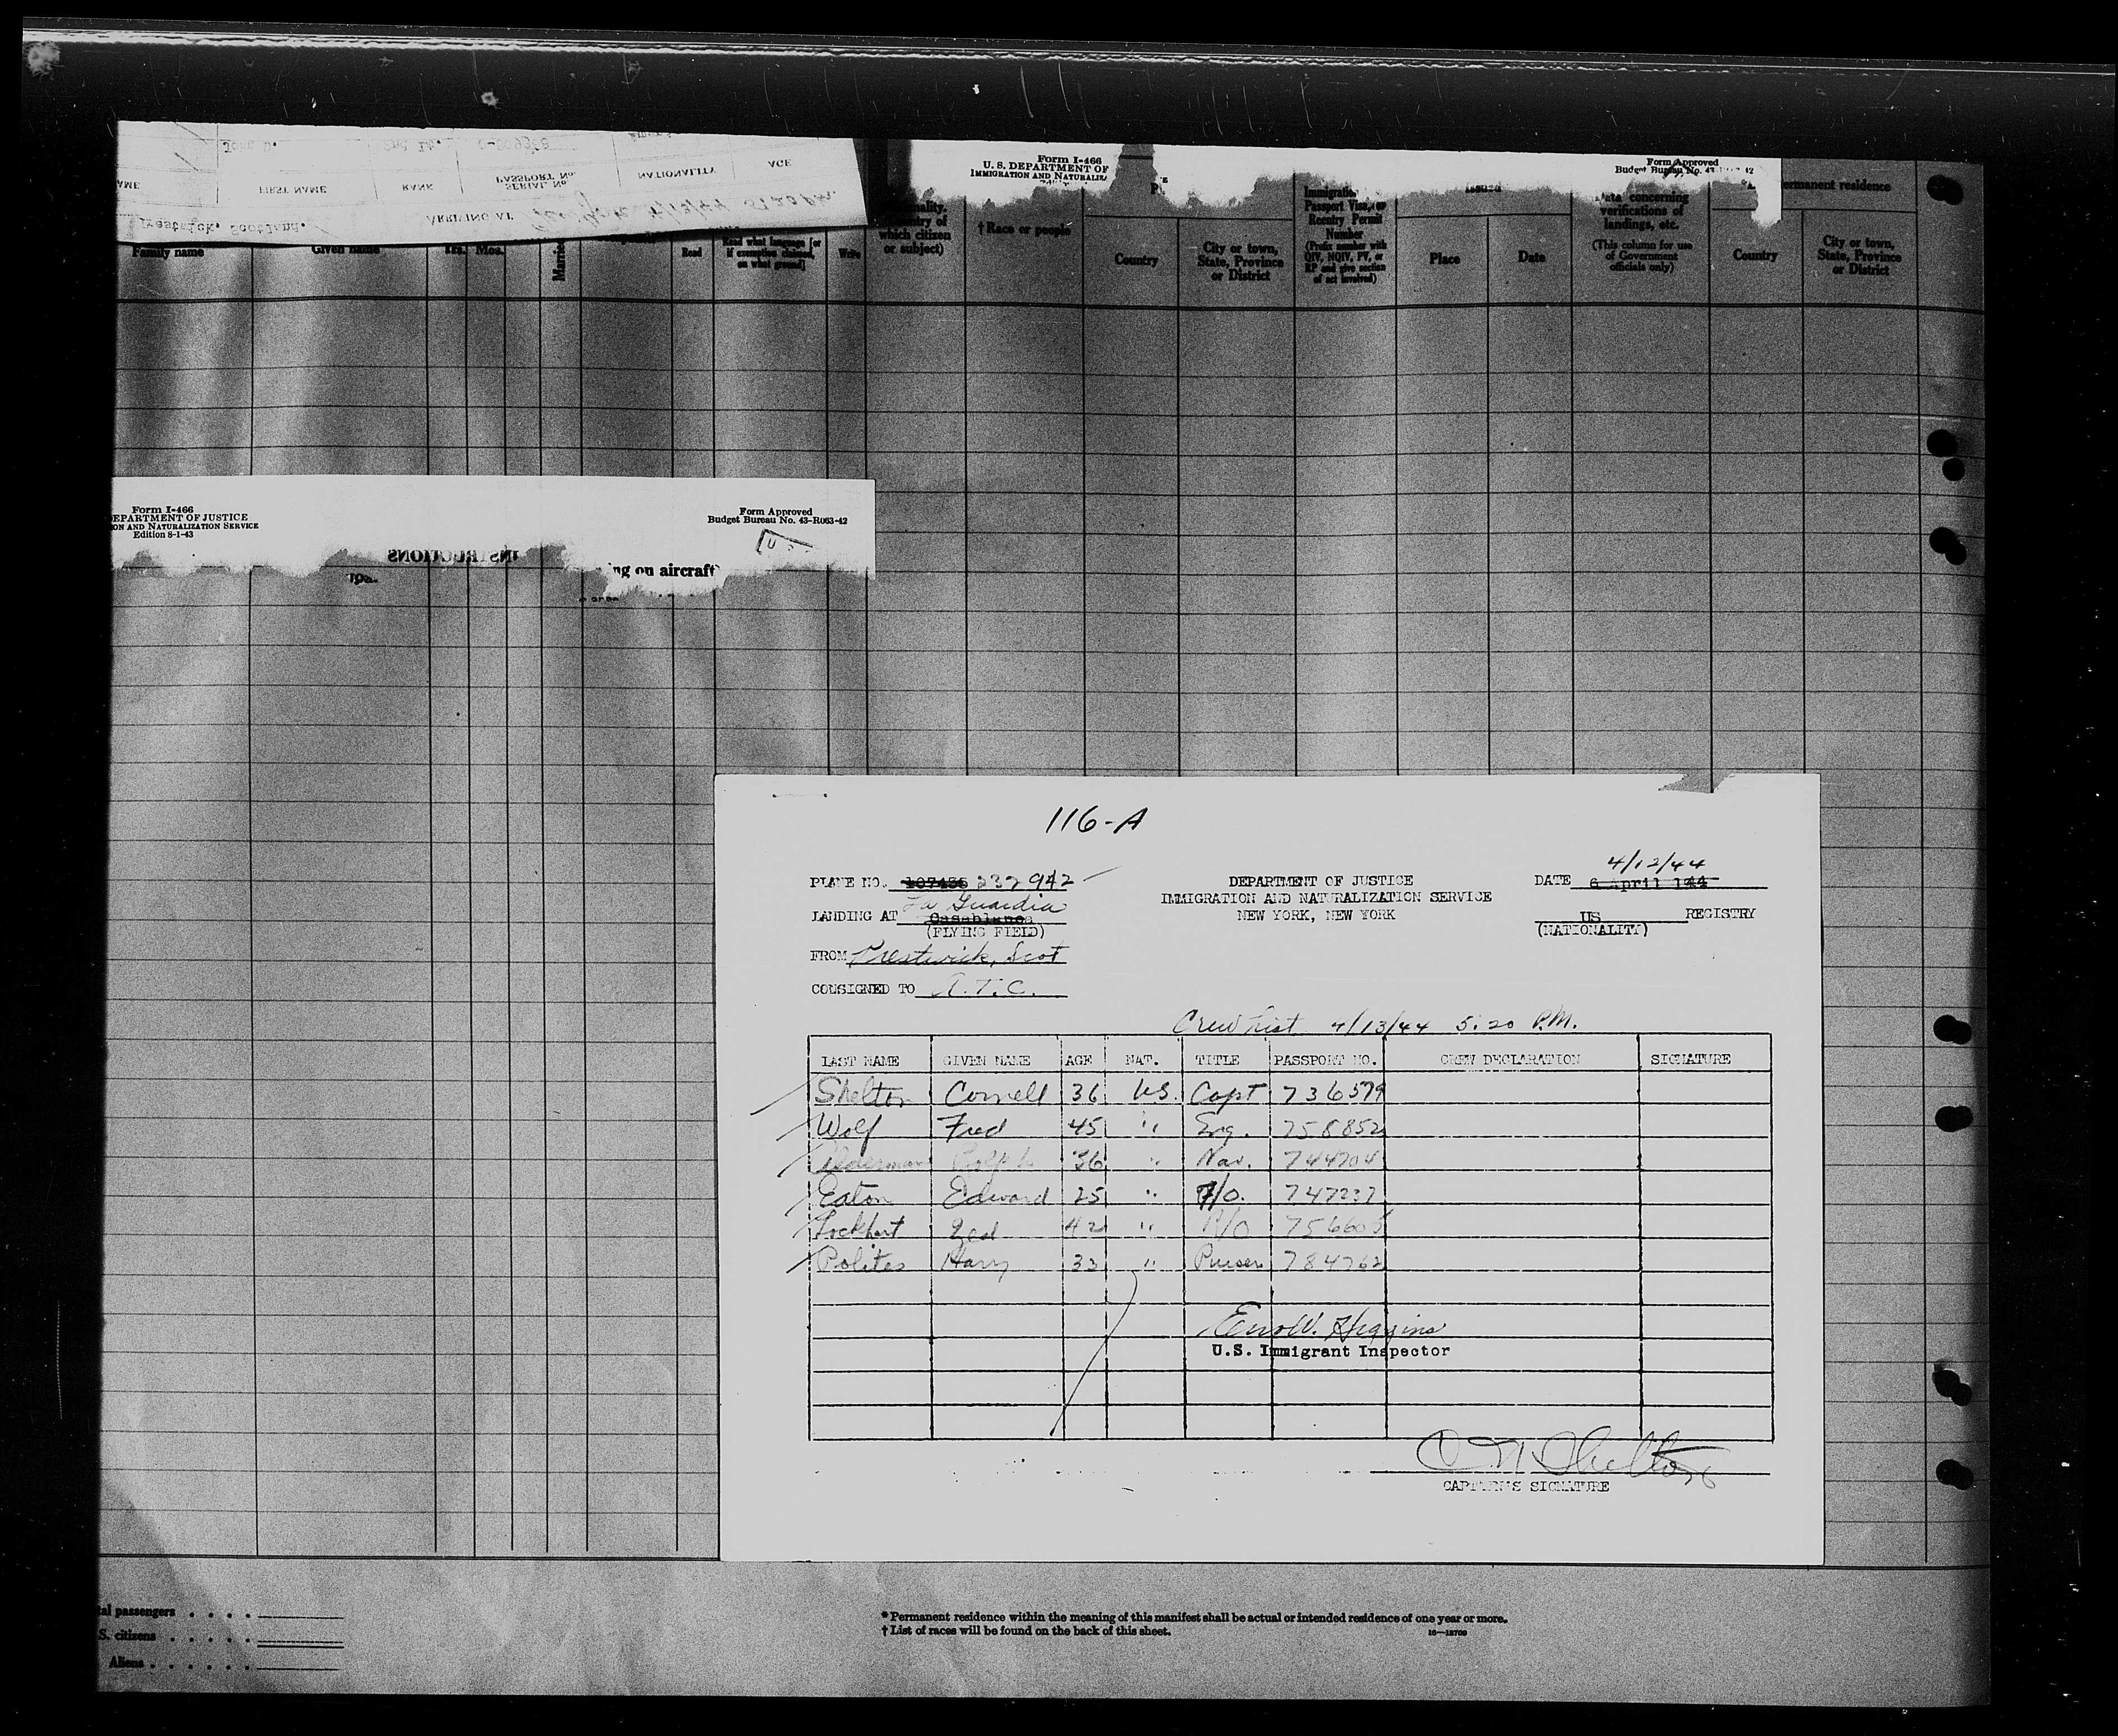 John D. 2nd Lt.
FIRST NAME RANK SERIAL No. PASSPORT No. NATIONALITY AGE
Prestwick, Scotland. ARRIVING AT
Form I-466
U. S. DEPARTMENT OF
IMMIGRATION AND
Form Approved
Budget Bureau No. 43
Family name Given name Yrs. Mos. Read Read what language [or if exemption claimed, on what ground] Write
which citizen or subject) † Race or people Country City or town, State, Province or District
Passport Visa, or Reentry Permit Number (Prefix number with QIV, NQIV, PV, or RP and give section of act involved)
Place Date
concerning verifications of landings, etc. (This column for use of Government officials only)
permanent residence
Country City or town, State, Province or District
Form I-466
DEPARTMENT OF JUSTICE
ION AND NATURALIZATION SERVICE
Edition 8-1-43
Form Approved
Budget Bureau No. 43-R063-42
INSTRUCTIONS
ing on aircraft
116-A
PLANE NO. 107436 232942
LANDING AT La Guardia Casablanca
(FLYING FIELD)
FROM Prestwick, Scot
CONSIGNED TO A.T.C.
DEPARTMENT OF JUSTICE
IMMIGRATION AND NATURALIZATION SERVICE
NEW YORK, NEW YORK
4/12/44
DATE 6 April 144
US REGISTRY
(NATIONALITY)
Crew List 4/13/44 5:20 P.M.
LAST NAME GIVEN NAME AGE NAT. TITLE PASSPORT NO. CREW DECLARATION SIGNATURE
Shelton Cornell 36 US. Capt 736579
Wolf Fred 45 " Eng. 758852
Ralph 36 " Nav.
Eaton Edward 25 " F/O. 747237
Lockhart 42 " R/O
Polites Harry 33 " Purser 784762
W. Higgins
U.S. Immigrant Inspector
Shelton
CAPTAIN'S SIGNATURE
al passengers
S. citizens
Aliens
* Permanent residence within the meaning of this manifest shall be actual or intended residence of one year or more.
† List of races will be found on the back of this sheet.
16—18709